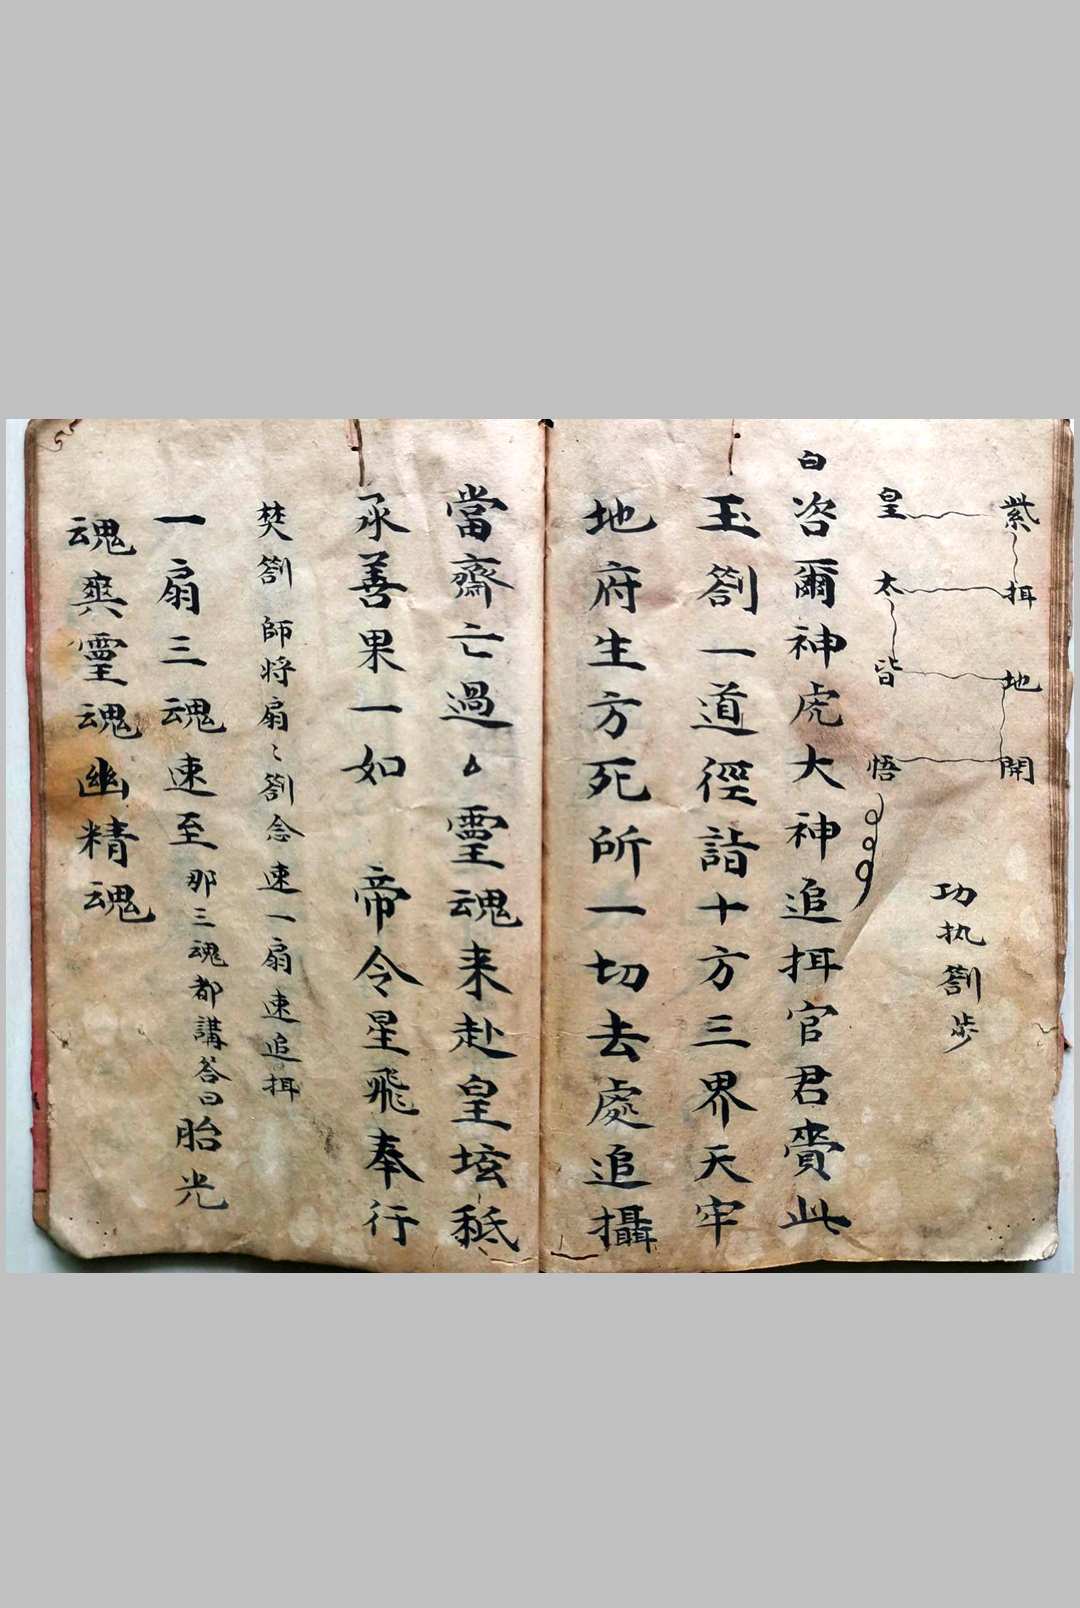 紫挕地開
功执劄步
皇太皆悟
白
咨爾神虎大神追挕官君賫此
玉劄一道徑詣十方三界天牢
地府生方死所一切去處追攝
當齋亡過灵魂来赴皇坛秪
承善果一如 帝令星飛奉行
焚劄 師将扇〻劄念速一扇速追挕
一扇三魂速至那三魂都講答曰胎光
魂爽靈魂幽精魂